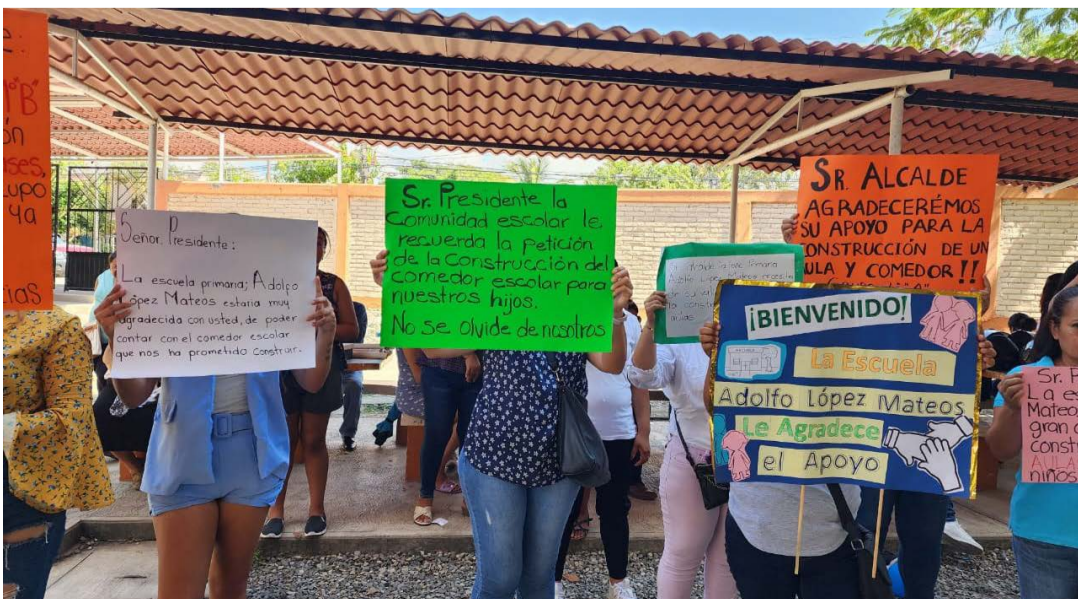 e:
1°B
ón
ses,
upo
ya
cias
Señor. Presidente:
La escuela primaria; Adolfo
López Mateos estaria muy
agradecida con usted, de poder
contar con el comedor escolar
que nos ha prometido construir.
Sr. Presidente la
Comunidad escolar le
recuerda la petición
de la construcción del
comedor escolar para
nuestros hijos.
No se olvide de nosotros
primaria
Adolfo López Mateos
por su
la constru
aulas
SR. ALCALDE
AGRADECERÉMOS
SU APOYO PARA LA
CONSTRUCCIÓN DE UN
ULA Y COMEDOR!!
¡BIENVENIDO!
La Escuela
Adolfo López Mateos
Le Agradece
el Apoyo
Sr. P
La es
Mateo
gran
const
niños